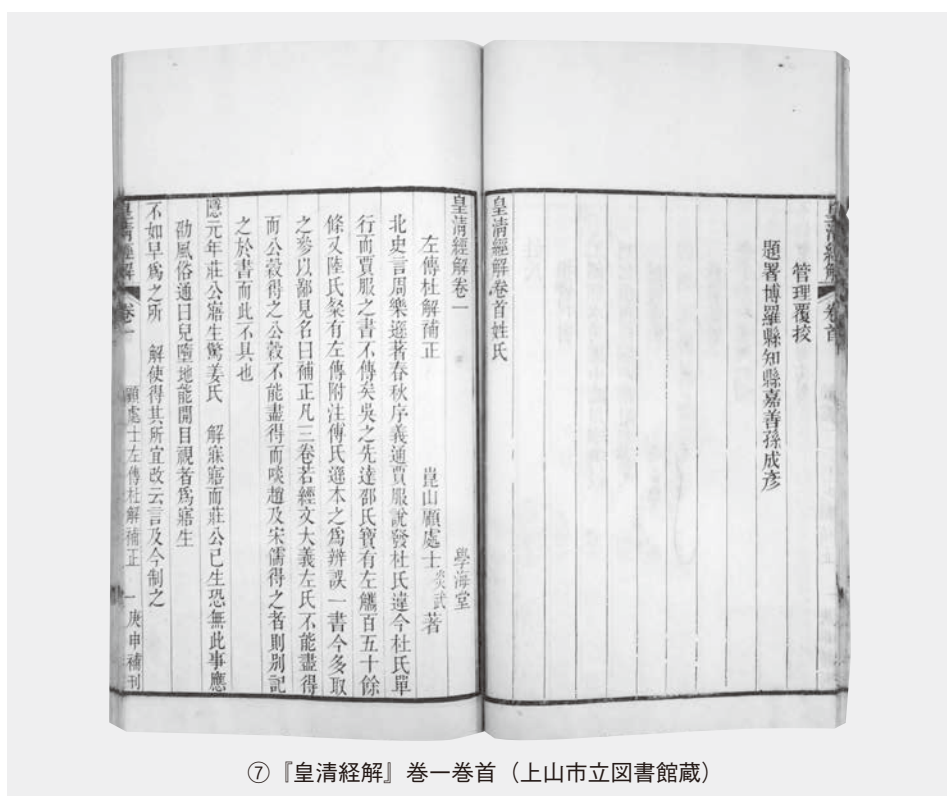 皇清經解 卷首
管理覆挍
題署博羅縣知縣嘉善孫成彥
皇清經解卷首姓氏
皇清經解卷一 學海堂
左傳杜解補正 崑山顧處士炎武著
北史言周樂遜著春秋序義通賈服說發杜氏違今杜氏單
行而賈服之書不傳矣吳之先達邵氏寶有左觿百五十餘
條又陸氏粲有左傳附注傅氏遜本之爲辨誤一書今多取
之參以鄙見名曰補正凡三卷若經文大義左氏不能盡得
而公穀得之公穀不能盡得而啖趙及宋儒得之者則別記
之於書而此不具也
隱元年莊公寤生驚姜氏 解寐寤而莊公已生恐無此事應
劭風俗通曰兒墮地能開目視者爲寤生
不如早爲之所 解使得其所宜改云言及今制之
皇清經解 卷一 顧處士左傳杜解補正 一 庚申補刊
⑦『皇清経解』巻一巻首（上山市立図書館蔵）